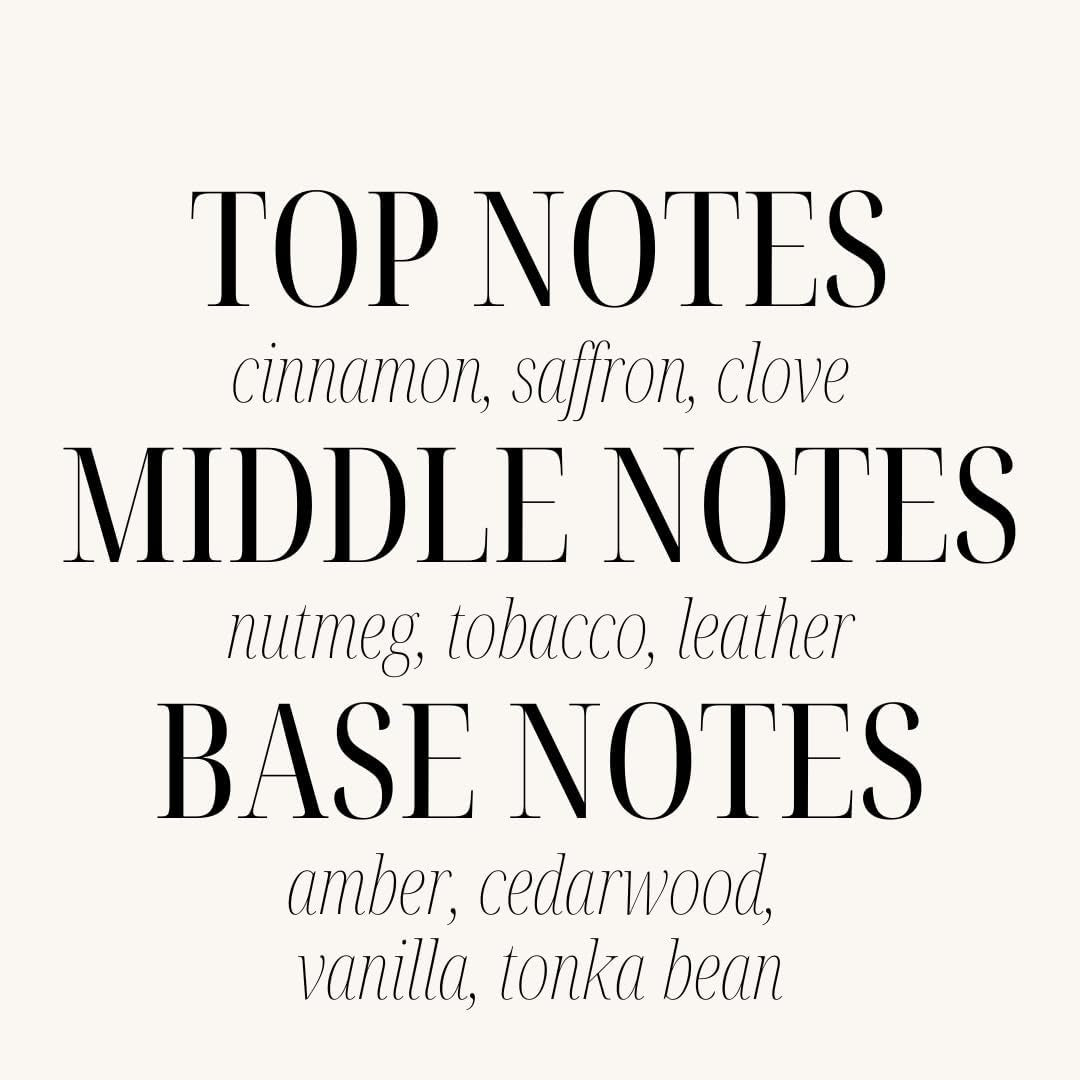 TOP NOTES
cinnamon, saffron, clove
MIDDLE NOTES
nutmeg, tobacco, leather
BASE NOTES
amber, cedarwood,
vanilla, tonka bean